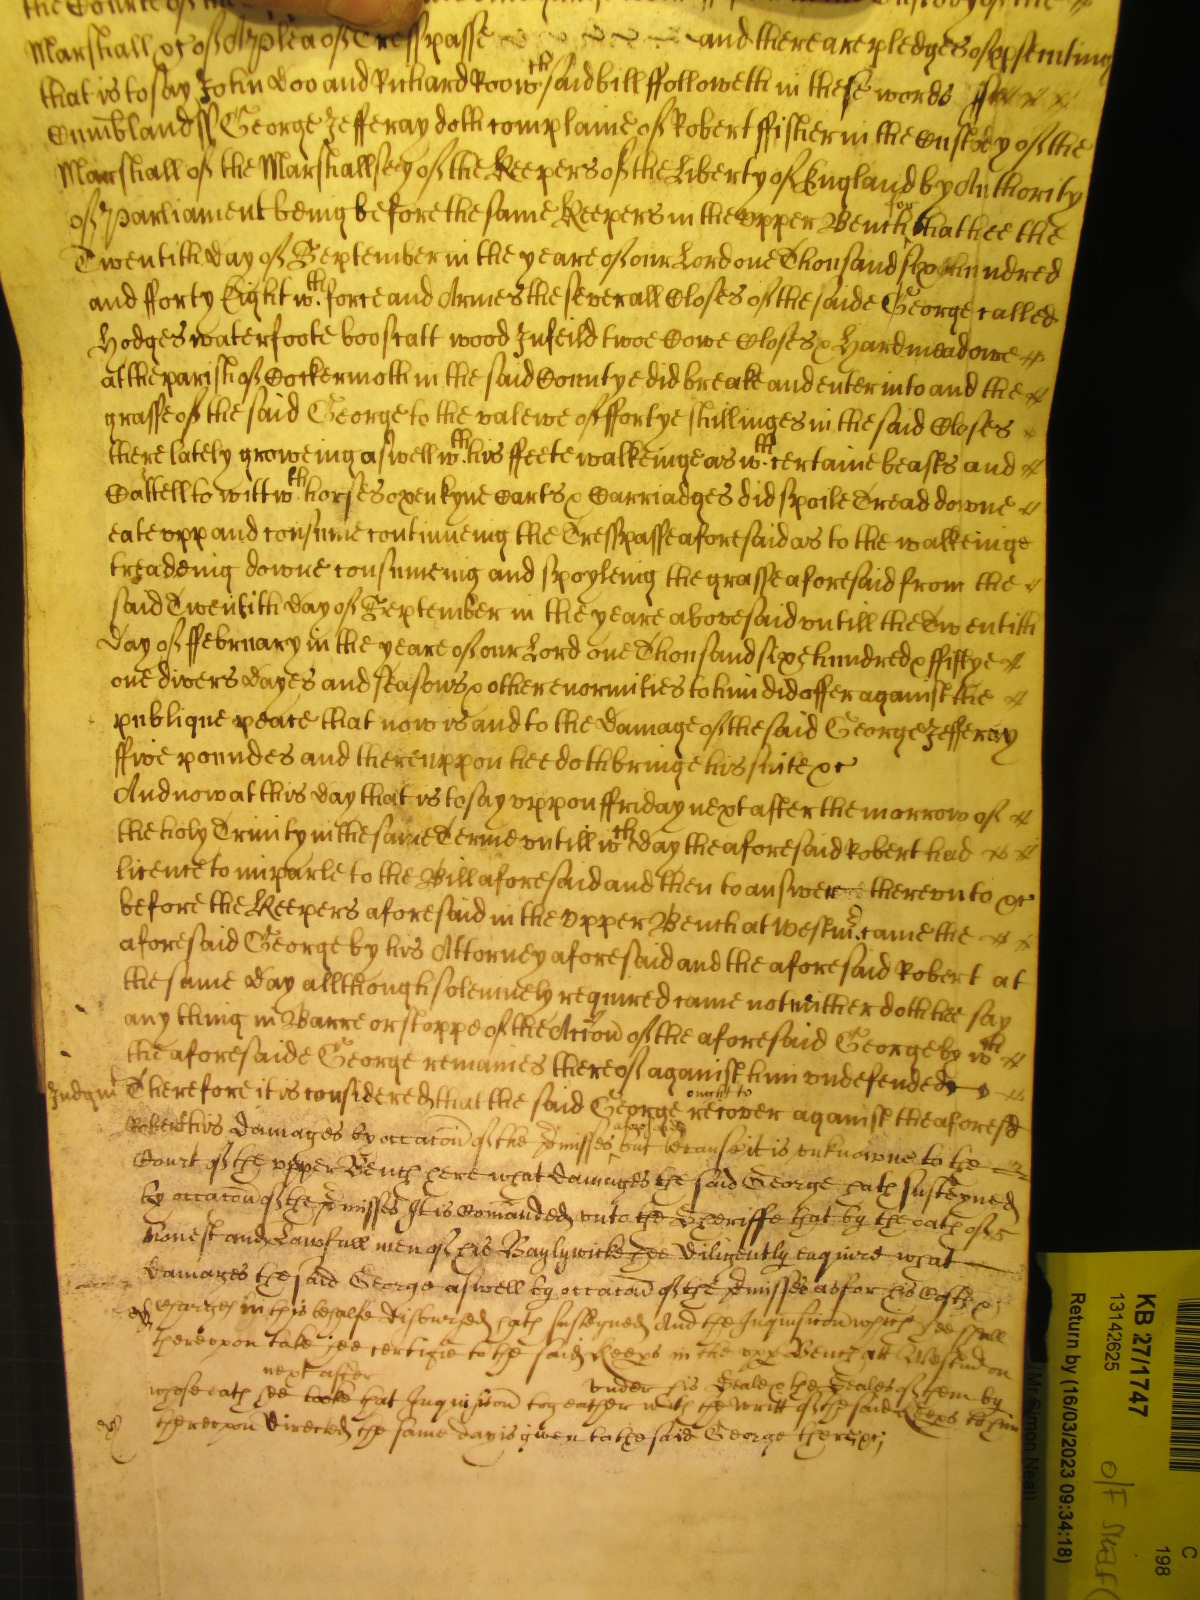 the Courte of the
Marshall &c of A plea of Tresspasse and there are pledges of p'secuting
that is to say John Doo and Richard Roo wth said bill ffolloweth in these words ss
Cumbland ss George Jefferay doth complaine of Robert ffisher in the Custody of the
Marshall of the Marshallsey of the Keepers of the Liberty of England by Authority
of Parliament being before the same Keepers in the upper Bench for that hee the
Twentith day of September in the yeare of our Lord one Thousand six hundred
and fforty Eight wth force and Armes the severall Closes of the saide George called
Hodges waterfoote booscatt wood Infeild twoe Cowe Closes & Hardmeadowe
at the parish of Cockermoth in the said Countye did breake and enter into and the
grasse of the said George to the valewe of ffortye shillinges in the said Closes
there lately groweing aswell wth his ffeete walkeinge as wth certaine beasts and
Cattell to witt wth horses oxen kyne Carts & Carriadges did spoile Tread downe
eate upp and consume continueing the Tresspasse aforesaid as to the walkeinge
treadeing downe consumeing and spoyleing the grasse aforesaid from the
said Twentith day of September in the yeare abovesaid untill the Twentith
day of ffebruary in the yeare of our Lord one Thousand sixe hundred & ffiftye
one divers dayes and seasons & other enormities to him did offer against the
publique peace that now is and to the damage of the said George Jefferay
ffive poundes and thereuppon hee doth bringe his suite &c
And now at this day that is to say uppon ffriday next after the morrow of
the holy Trinity in the same Terme untill wch day the aforesaid Robert had
licence to imparle to the Bill aforesaid and then to answere thereunto &c
before the Keepers aforesaid in the upper Bench at Westmr. came the
aforesaid George by his Attorney aforesaid and the aforesaid Robert at
the same day allthough solemnely required came not neither doth hee say
any thing in Barre or stoppe of the Accon of the aforesaid George by wch
the aforesaide George remaines thereof against him undefended
Judgmt Therefore it is considered that the said George ought to recover against the aforesd
Robert his damages by occacon of the p'misses aforesaid but because it is unknowne to the
Court of the upper Bench here what damages the said George hath susteyned
by occacon of the p'misses It is Comanded unto the Sheriffe that by the oath of 12
honest and Lawfull men of his Baylywicke hee diligently enquire what
damages the said George aswell by occacon of the p'misses as for his Costs &
charges in this behalfe disbursed hath susteyned And the Inquisicon which hee shall
thereupon take hee certifie to the said Keeps in the upp Bench att Westm on
next after under his Seale & the Seales of them by
whose oath hee tooke that Inquisicon togeather with the writt of the said Keeps to him
thereupon directed the same day is given to the said George there &c;
KB 27/1747
13142625
Return by (16/03/2023 09:34:18)
(Mr Simon Neal)
C
198